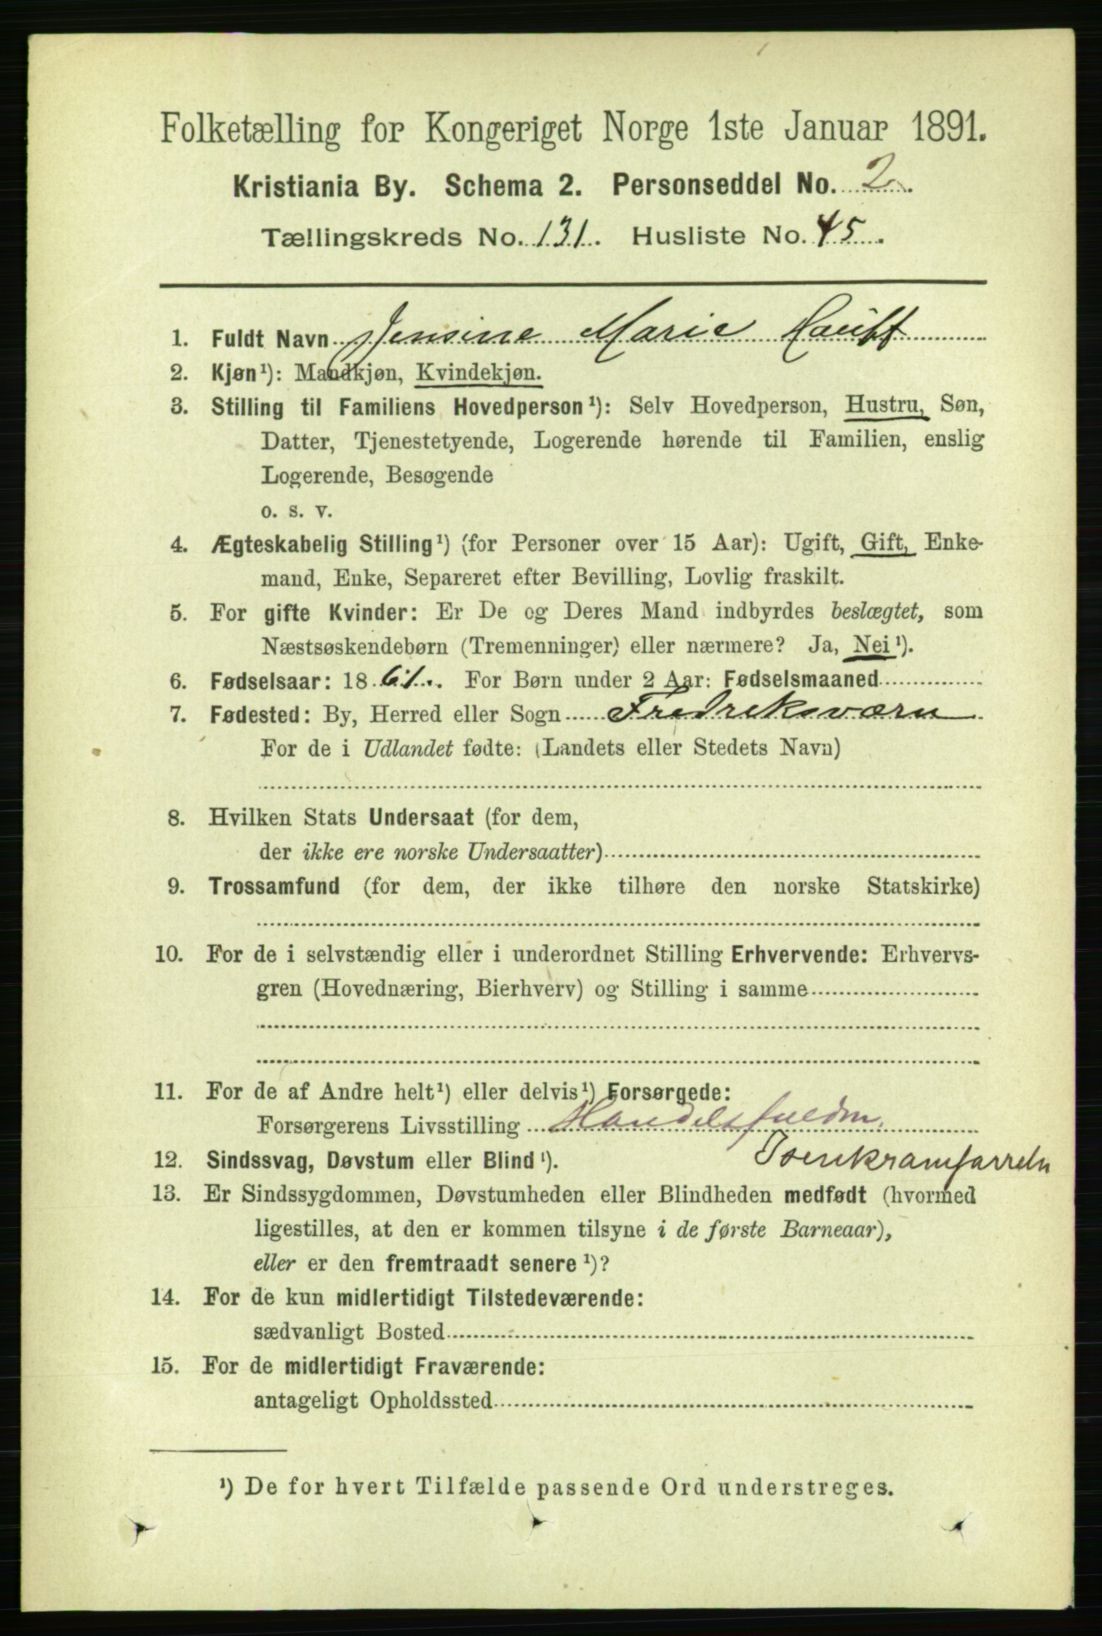 Folketælling for Kongeriget Norge 1ste Januar 1891.
Kristiania By. Schema 2. Personseddel No. 2.
Tællingskreds No. 131. Husliste No. 45.
1. Fuldt Navn Jensine Marie Hauff
2. Kjøn¹): Mandkjøn, Kvindekjøn.
3. Stilling til Familiens Hovedperson¹): Selv Hovedperson, Hustru, Søn,
Datter, Tjenestetyende, Logerende hørende til Familien, enslig
Logerende, Besøgende
o. s. v.
4. Ægteskabelig Stilling¹) (for Personer over 15 Aar): Ugift, Gift, Enke-
mand, Enke, Separeret efter Bevilling, Lovlig fraskilt.
5. For gifte Kvinder: Er De og Deres Mand indbyrdes beslægtet, som
Næstsøskendebørn (Tremenninger) eller nærmere? Ja, Nei¹).
6. Fødselsaar: 1861. For Børn under 2 Aar: Fødselsmaaned
7. Fødested: By, Herred eller Sogn Fredriksværn
For de i Udlandet fødte: (Landets eller Stedets Navn)
8. Hvilken Stats Undersaat (for dem,
der ikke ere norske Undersaatter)
9. Trossamfund (for dem, der ikke tilhøre den norske Statskirke)
10. For de i selvstændig eller i underordnet Stilling Erhvervende: Erhvervs-
gren (Hovednæring, Bierhverv) og Stilling i samme
11. For de af Andre helt¹) eller delvis¹) Forsørgede:
Forsørgerens Livsstilling Handelsfuldm.
12. Sindssvag, Døvstum eller Blind¹). Isenkramforretn
13. Er Sindssygdommen, Døvstumheden eller Blindheden medfødt (hvormed
ligestilles, at den er kommen tilsyne i de første Barneaar),
eller er den fremtraadt senere¹)?
14. For de kun midlertidigt Tilstedeværende:
sædvanligt Bosted
15. For de midlertidigt Fraværende:
antageligt Opholdssted
¹) De for hvert Tilfælde passende Ord understreges.